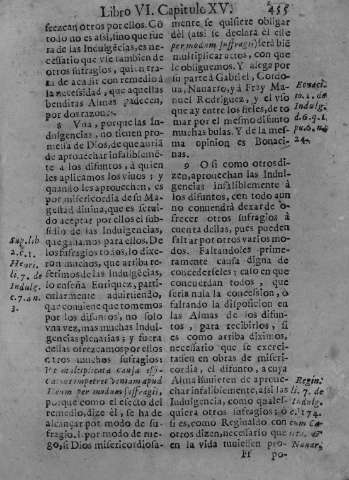 Libro VI. Capitulo XV. 455
frezcan otros por ellos. Cõ
todo no es assi, sino que fue
ra de las Indulgẽcias, es ne-
cessario que vse tambien de
otros sufragios, quien tra-
ta de acudir con remedio à
la necessidad, que aquellas
benditas Almas padecen,
por dos razones.
8 Vna, porque las In-
dulgencias, no tienen pro-
messa de Dios, de que auràn
de aprouechar infaliblemẽ-
te à los difuntos, à quien
les aplicamos los viuos; y
quando les aprouechen, es
por misericordia de su Ma-
gestad diuina, que es serui-
do aceptar por ellos el sub-
sidio de las Indulgencias,
que ganamos para ellos. De
los sufragios todos, lo dixe-
ron muchos, que arriba re-
ferimos de las Indulgẽcias,
lo enseña Enriquez, parti-
cularmente aduirtiendo,
que conuiene que tomemos
por los difuntos, no solo
vna vez, mas muchas Indul-
gencias plenarias; y fuera
dellas ofrezcamos por ellos
otros muchos sufragios:
porque como el efecto del
remedio, dize èl, se ha de
alcançar por modo de su-
fragio, i por modo de rue-
go, si Dios misericordiosa-
Sup. lib
2. c. 1.
Henri.
li. 7. de
Indulg.
c. 7. an.
3.
mente se quisiere obligar
dèl (assi se declara èl esse
per modum suffragij) serà biẽ
multiplicar actos, con que
le obliguemos. Y alega por
su parte à Gabriel, Cordo-
ua, Nauarro, ya Fray Ma-
nuel Rodriguez, y el vso
que ay entre los fieles, de to
mar por el mesmo difunto
muchas bulas. Y de la mes-
ma opinion es Bonaci-
nas.
9 O si como otros di-
zen, aprouechan las Indul-
gencias infaliblemente à
los difuntos, con todo aun
no conuendrà dexar de o-
frecer otros sufragios à
cuenta dellas, pues pueden
faltar por otros varios mo-
dos. Faltandoles primera-
mente causa digna de
concederseles; caso en que
concuerdan todos, que
seria nula la concession, o
faltando la disposicion en
las Almas de los difun-
tos, para recibirlos, si
es como arriba dixìmos,
necessario que se exerci-
tassen en obras de miseri-
cordia, el difunto, a cuya
Alma huuieren de aproue-
char infaliblemente, assi las
Indulgencias, como quales-
quiera otros sufragios; o
si es, como Reginaldo con
otros dizen, necessario que
en la vida tuuiessen pro-
Ff po-
Bonaci.
to. 1. de
Indulg.
d. 6. q. 1.
Regin.
li. 7. de
Indulg.
c. 174.
Nauar.